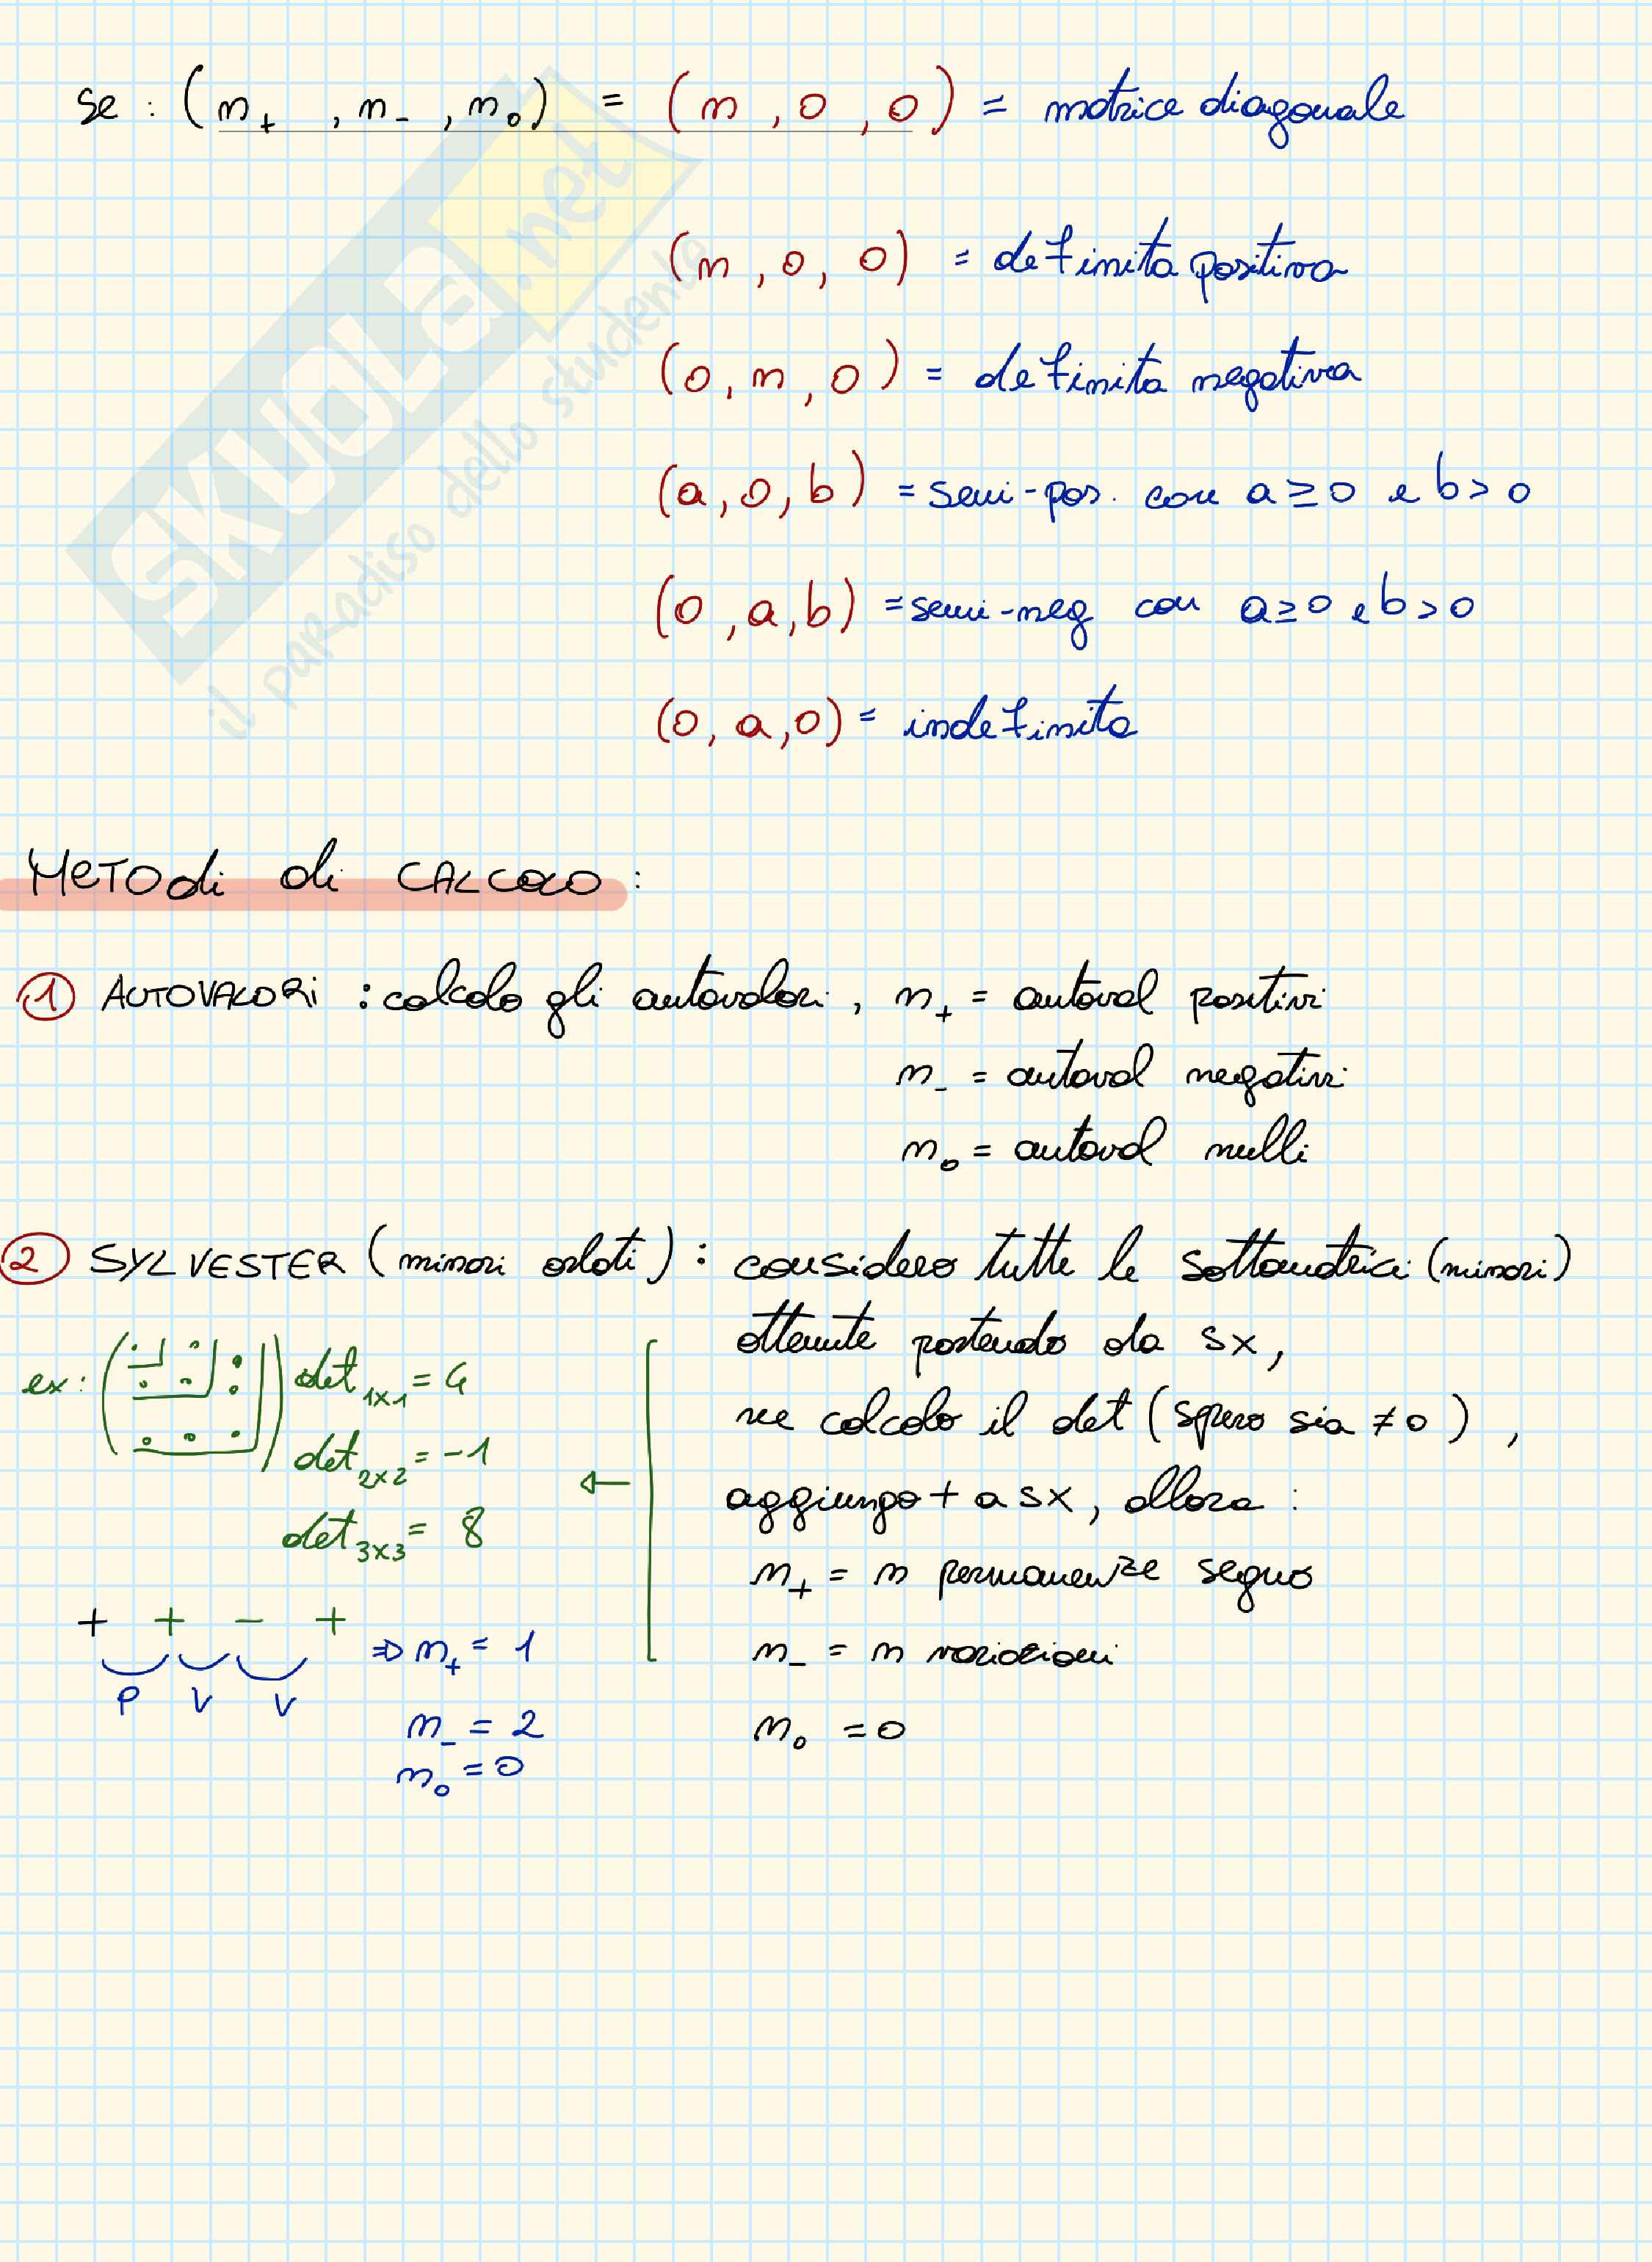 se : (n₊ , n₋ , n₀) = (n , 0 , 0) = matrice diagonale
(n , 0 , 0) = definita positiva
(0 , n , 0) = definita negativa
(a , 0 , b) = semi-pos. con a ≥ 0 e b > 0
(0 , a , b) = semi-neg con a ≥ 0 e b > 0
(0 , a , 0) = indefinita
SKUOLA.net
il paradiso dello studente
METODI di CALCOLO :
① AUTOVALORI : calcolo gli autovalori , n₊ = autoval positivi
n₋ = autoval negativi
n₀ = autoval nulli
② SYLVESTER (minori orlati) : considero tutte le sottomatrici (minori)
ottenute partendo da sx,
ne calcolo il det (spero sia ≠ 0) ,
aggiungo + a sx, allora :
n₊ = n permanenze segno
n₋ = n variazioni
n₀ = 0
ex : det₁ₓ₁ = 4
det₂ₓ₂ = -1
det₃ₓ₃ = 8
+ + - +
P V V
⇒ n₊ = 1
n₋ = 2
n₀ = 0